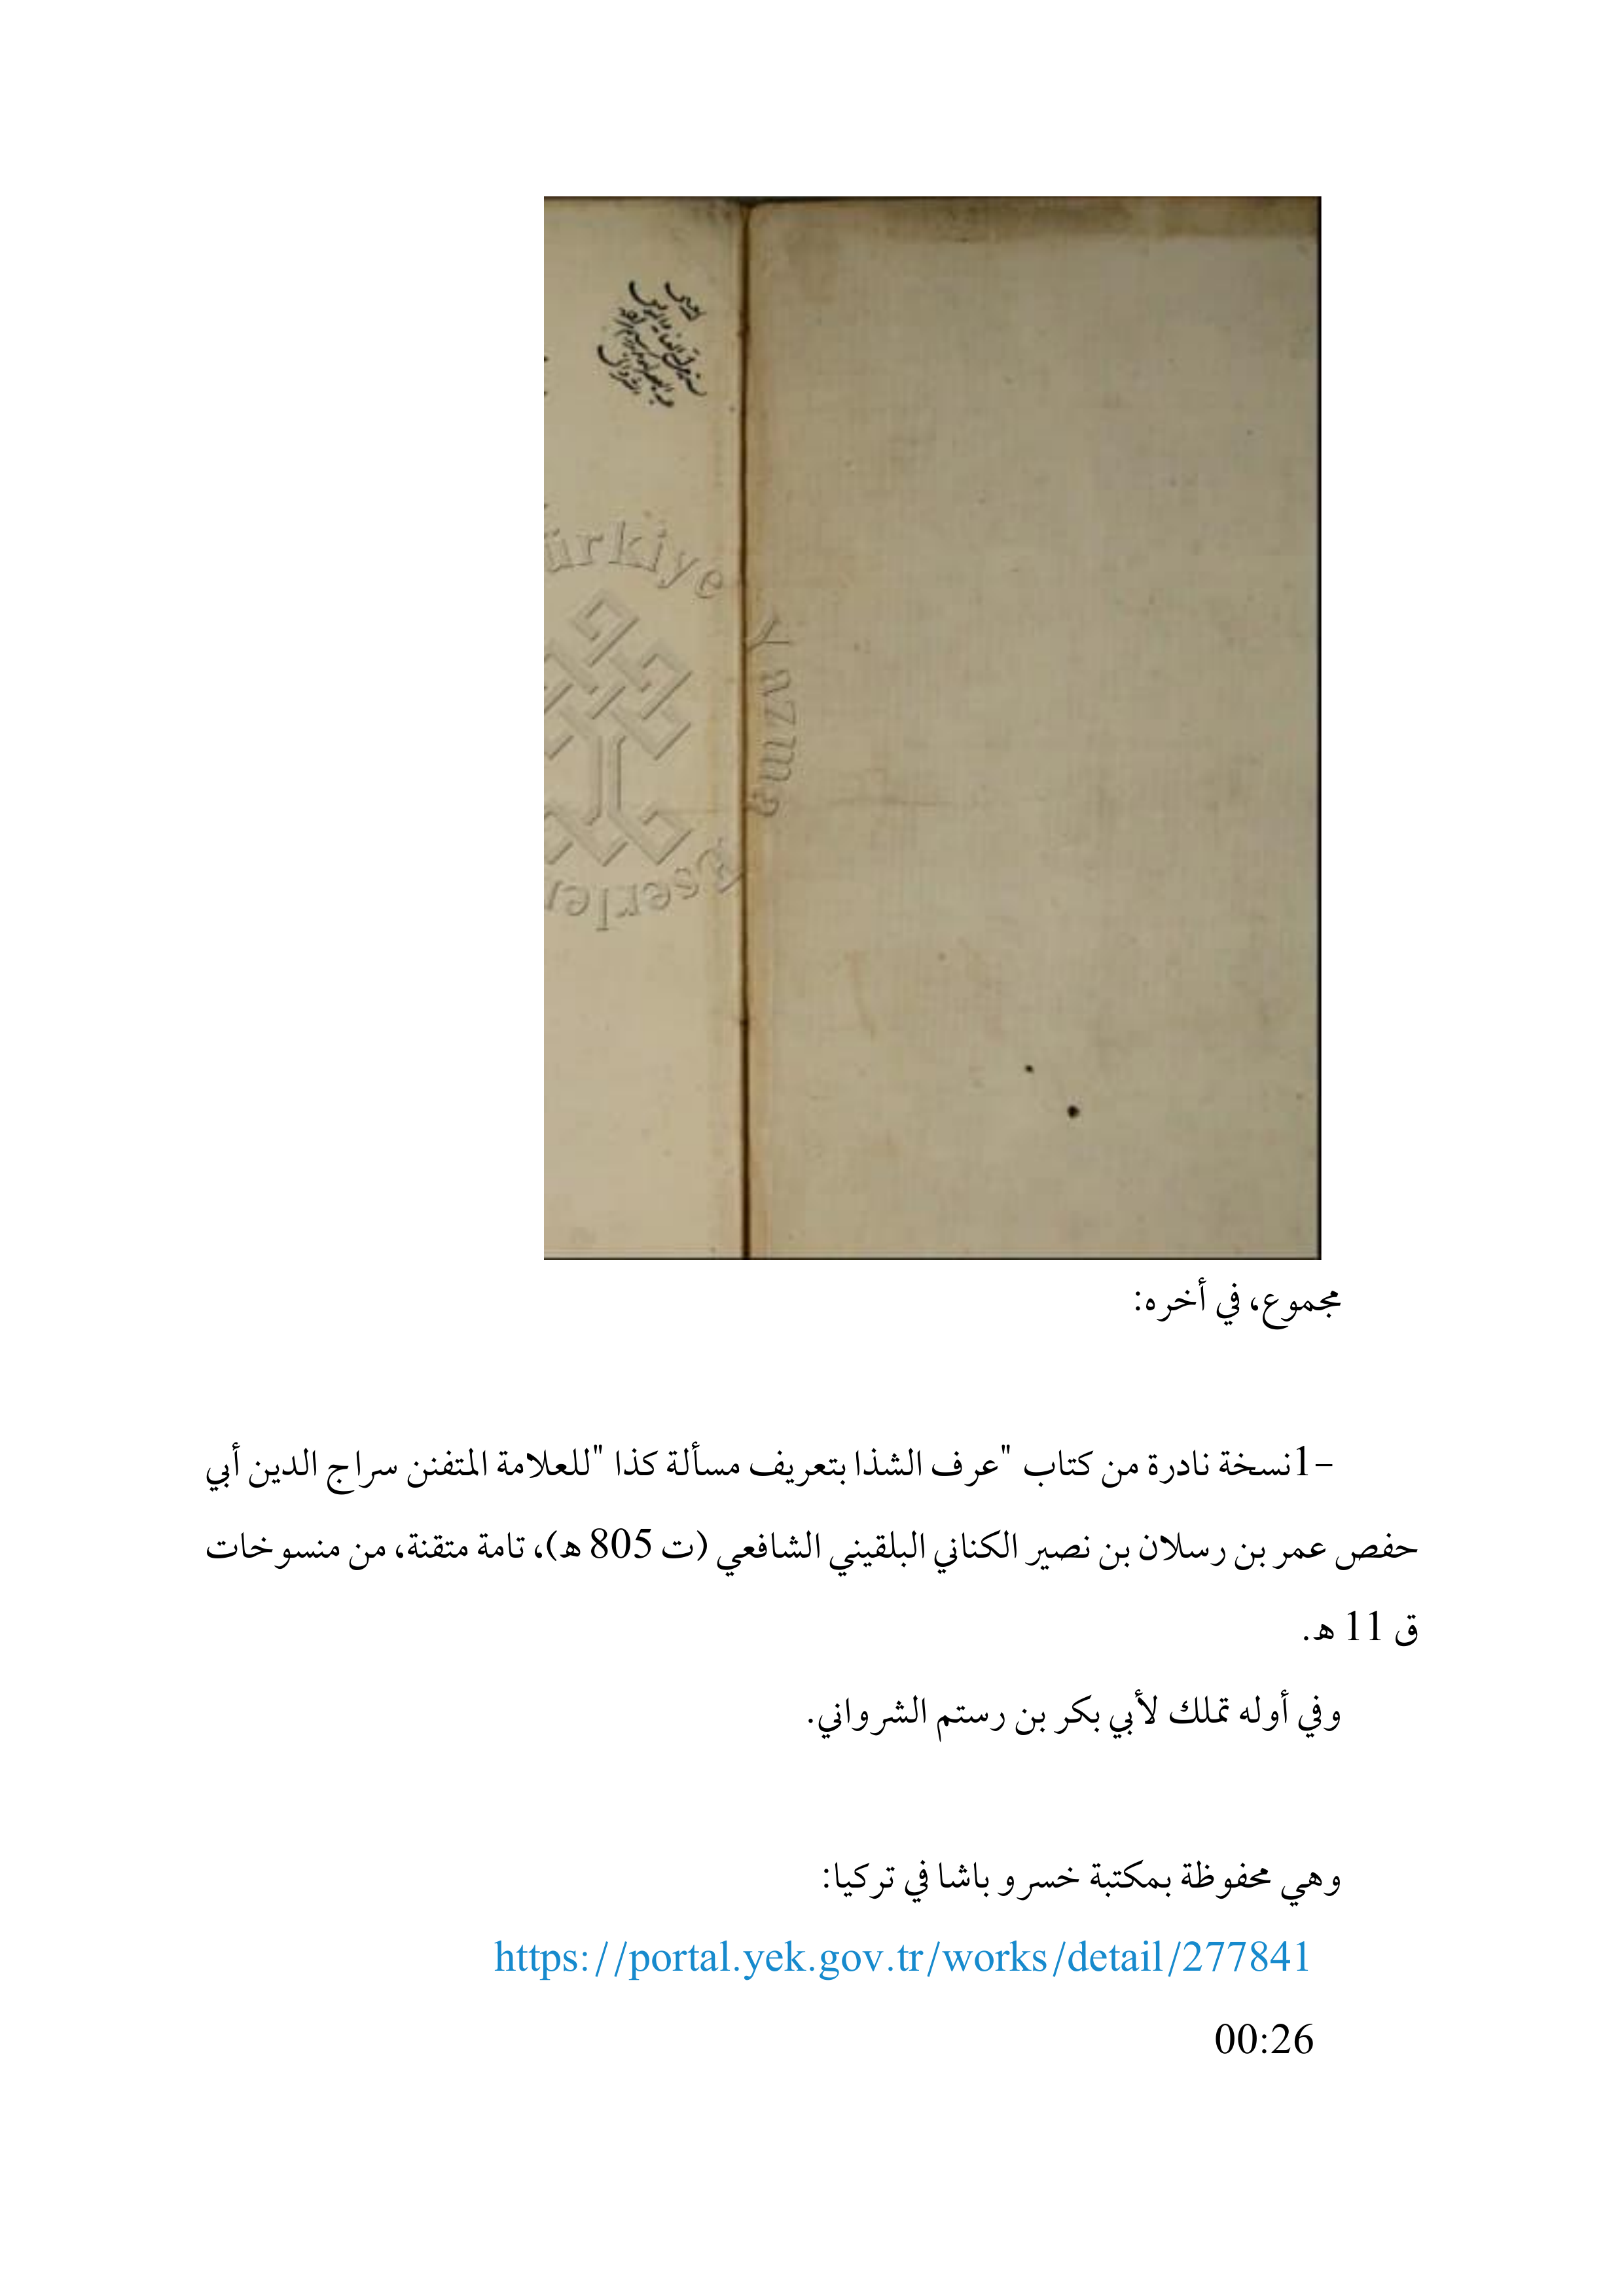 ürkiye
Yazma
Eserler
مجموع، في أخره:
-1نسخة نادرة من كتاب "عرف الشذا بتعريف مسألة كذا "للعلامة المتفنن سراج الدين أبي
حفص عمر بن رسلان بن نصير الكناني البلقيني الشافعي (ت 805 هـ)، تامة متقنة، من منسوخات
ق 11 هـ.
وفي أوله تملك لأبي بكر بن رستم الشرواني.
وهي محفوظة بمكتبة خسرو باشا في تركيا:
https://portal.yek.gov.tr/works/detail/277841
00:26